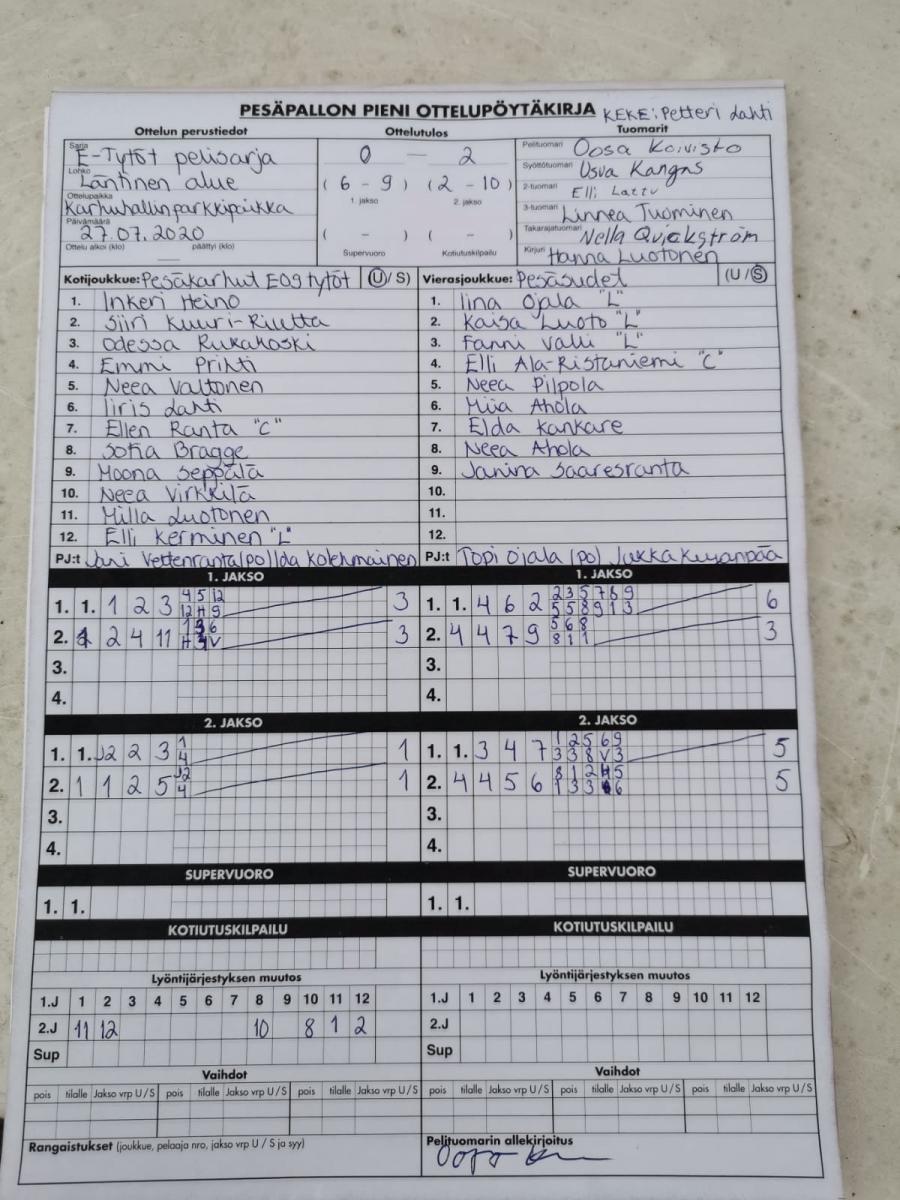 PESÄPALLON PIENI OTTELUPÖYTÄKIRJA KEKE: Petteri Lahti
Ottelun perustiedot Ottelutulos Tuomarit
Sarja E-Tytöt pelisarja
Lohko Läntinen alue
Ottelupaikka Karhuhallin parkkipaikka
Päivämäärä 27.07.2020
Ottelu alkoi (klo) päättyi (klo)
0 — 2
(6 - 9) (2 - 10)
1. jakso 2. jakso
( - ) ( - )
Supervuoro Kotiutuskilpailu
Pelituomari Oosa Koivisto
Syöttötuomari Usva Kangas
2-tuomari Elli Lattu
3-tuomari Linnea Tuominen
Takarajatuomari Nella Qvickström
Kirjuri Hanna Luotonen
Kotijoukkue: Pesäkarhut E09 tytöt (U/S)
1. Inkeri Heino
2. Siiri Kuuri-Riutta
3. Odessa Rukakoski
4. Emmi Prihti
5. Neea Valtonen
6. Iiris Lahti
7. Ellen Ranta "C"
8. Sofia Bragge
9. Moona Seppälä
10. Neea Virkkilä
11. Milla Luotonen
12. Elli Kerminen "L"
PJ:t Jari Vettenranta (po) Ida Kolehmainen
Vierasjoukkue: Pesäsudet (U/S)
1. Iina Ojala "L"
2. Kaisa Luoto "L"
3. Fanni Valli "L"
4. Elli Ala-Ristaniemi "C"
5. Neea Pilpola
6. Miia Ahola
7. Elda Kankare
8. Neea Ahola
9. Janina Saaresranta
10.
11.
12.
PJ:t Topi Ojala (po)
1. JAKSO
1. 1. 1 2 3 4 5 12 3
12 H 9
2. 2 4 11 3
3.
4.
1. JAKSO
1. 1. 4 6 2 2 3 5 7 8 9 6
5 5 8 9 1 3
2. 4 4 7 9 5 6 8 3
8 1 1
3.
4.
2. JAKSO
1. 1. 12 2 3 1 1
4
2. 1 1 2 5 12 1
4
3.
4.
2. JAKSO
1. 1. 3 4 7 1 2 5 6 9 5
3 3 8 V 3
2. 4 4 5 6 8 1 2 H 5 5
1 3 3 6
3.
4.
SUPERVUORO
1. 1.
SUPERVUORO
1. 1.
KOTIUTUSKILPAILU
KOTIUTUSKILPAILU
Lyöntijärjestyksen muutos
1.J 1 2 3 4 5 6 7 8 9 10 11 12
2.J 11 12 10 8 1 2
Sup
Lyöntijärjestyksen muutos
1.J 1 2 3 4 5 6 7 8 9 10 11 12
2.J
Sup
Vaihdot
pois tilalle Jakso vrp U/S pois tilalle Jakso vrp U/S
Vaihdot
pois tilalle Jakso vrp U/S pois tilalle Jakso vrp U/S pois
Rangaistukset (joukkue, pelaaja nro, jakso vrp U / S ja syy)
Pelituomarin allekirjoitus